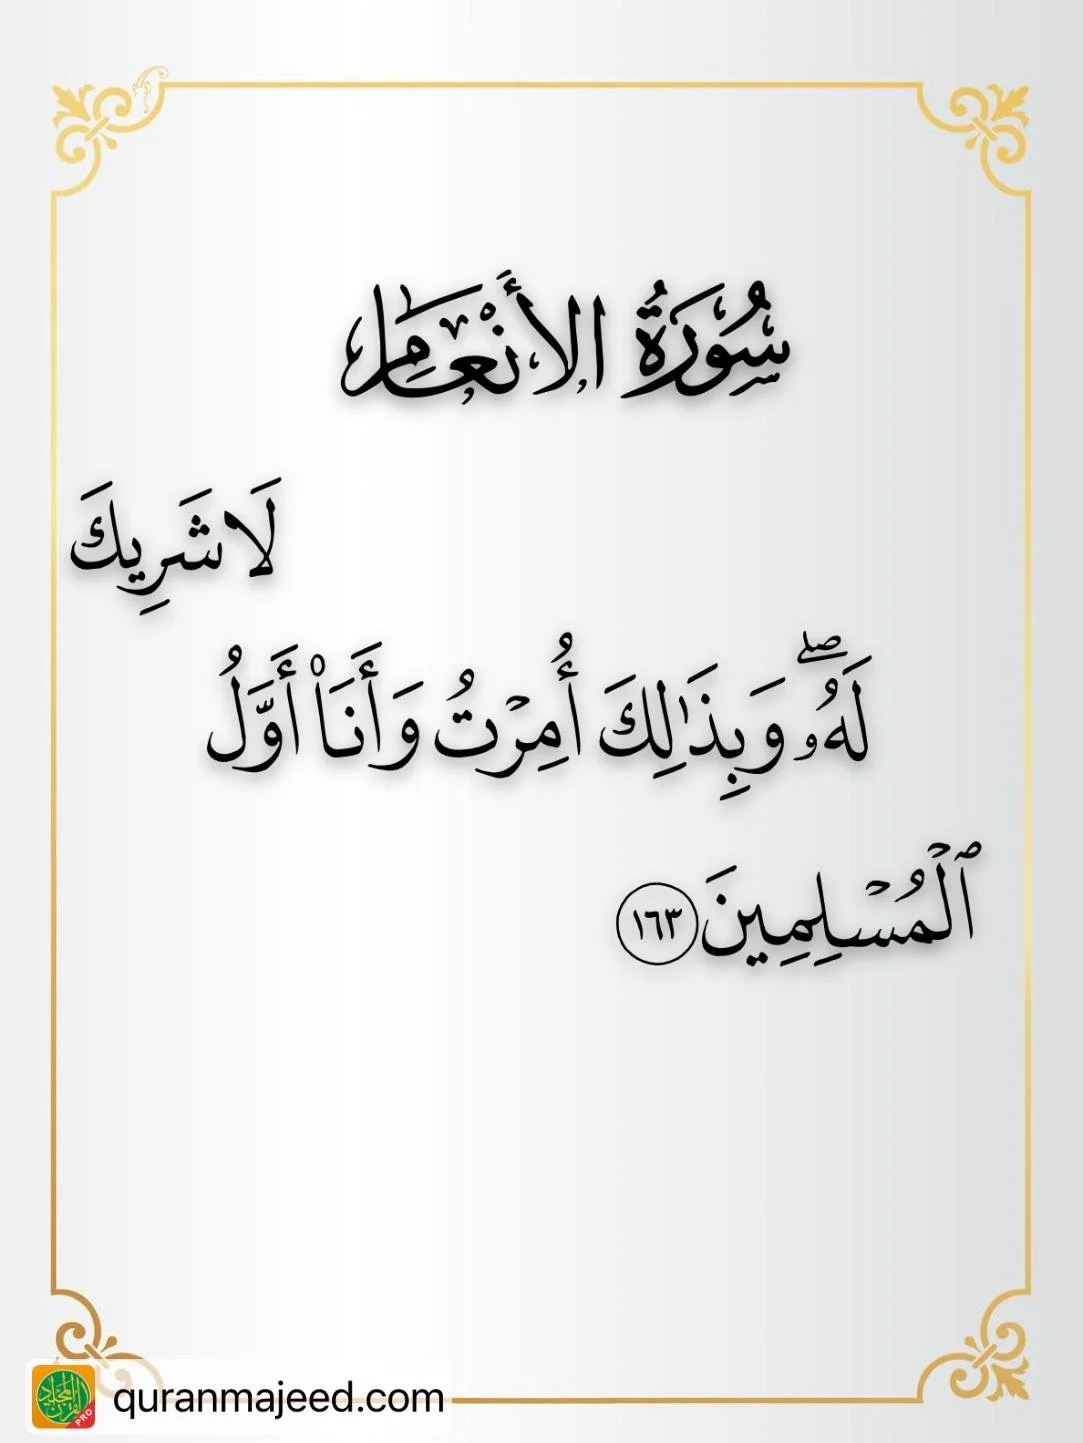 سُورَةُ الأَنْعَامِ
لَا شَرِيكَ
لَهُۥۖ وَبِذَٰلِكَ أُمِرۡتُ وَأَنَا۠ أَوَّلُ
ٱلۡمُسۡلِمِينَ ١٦٣
quranmajeed.com